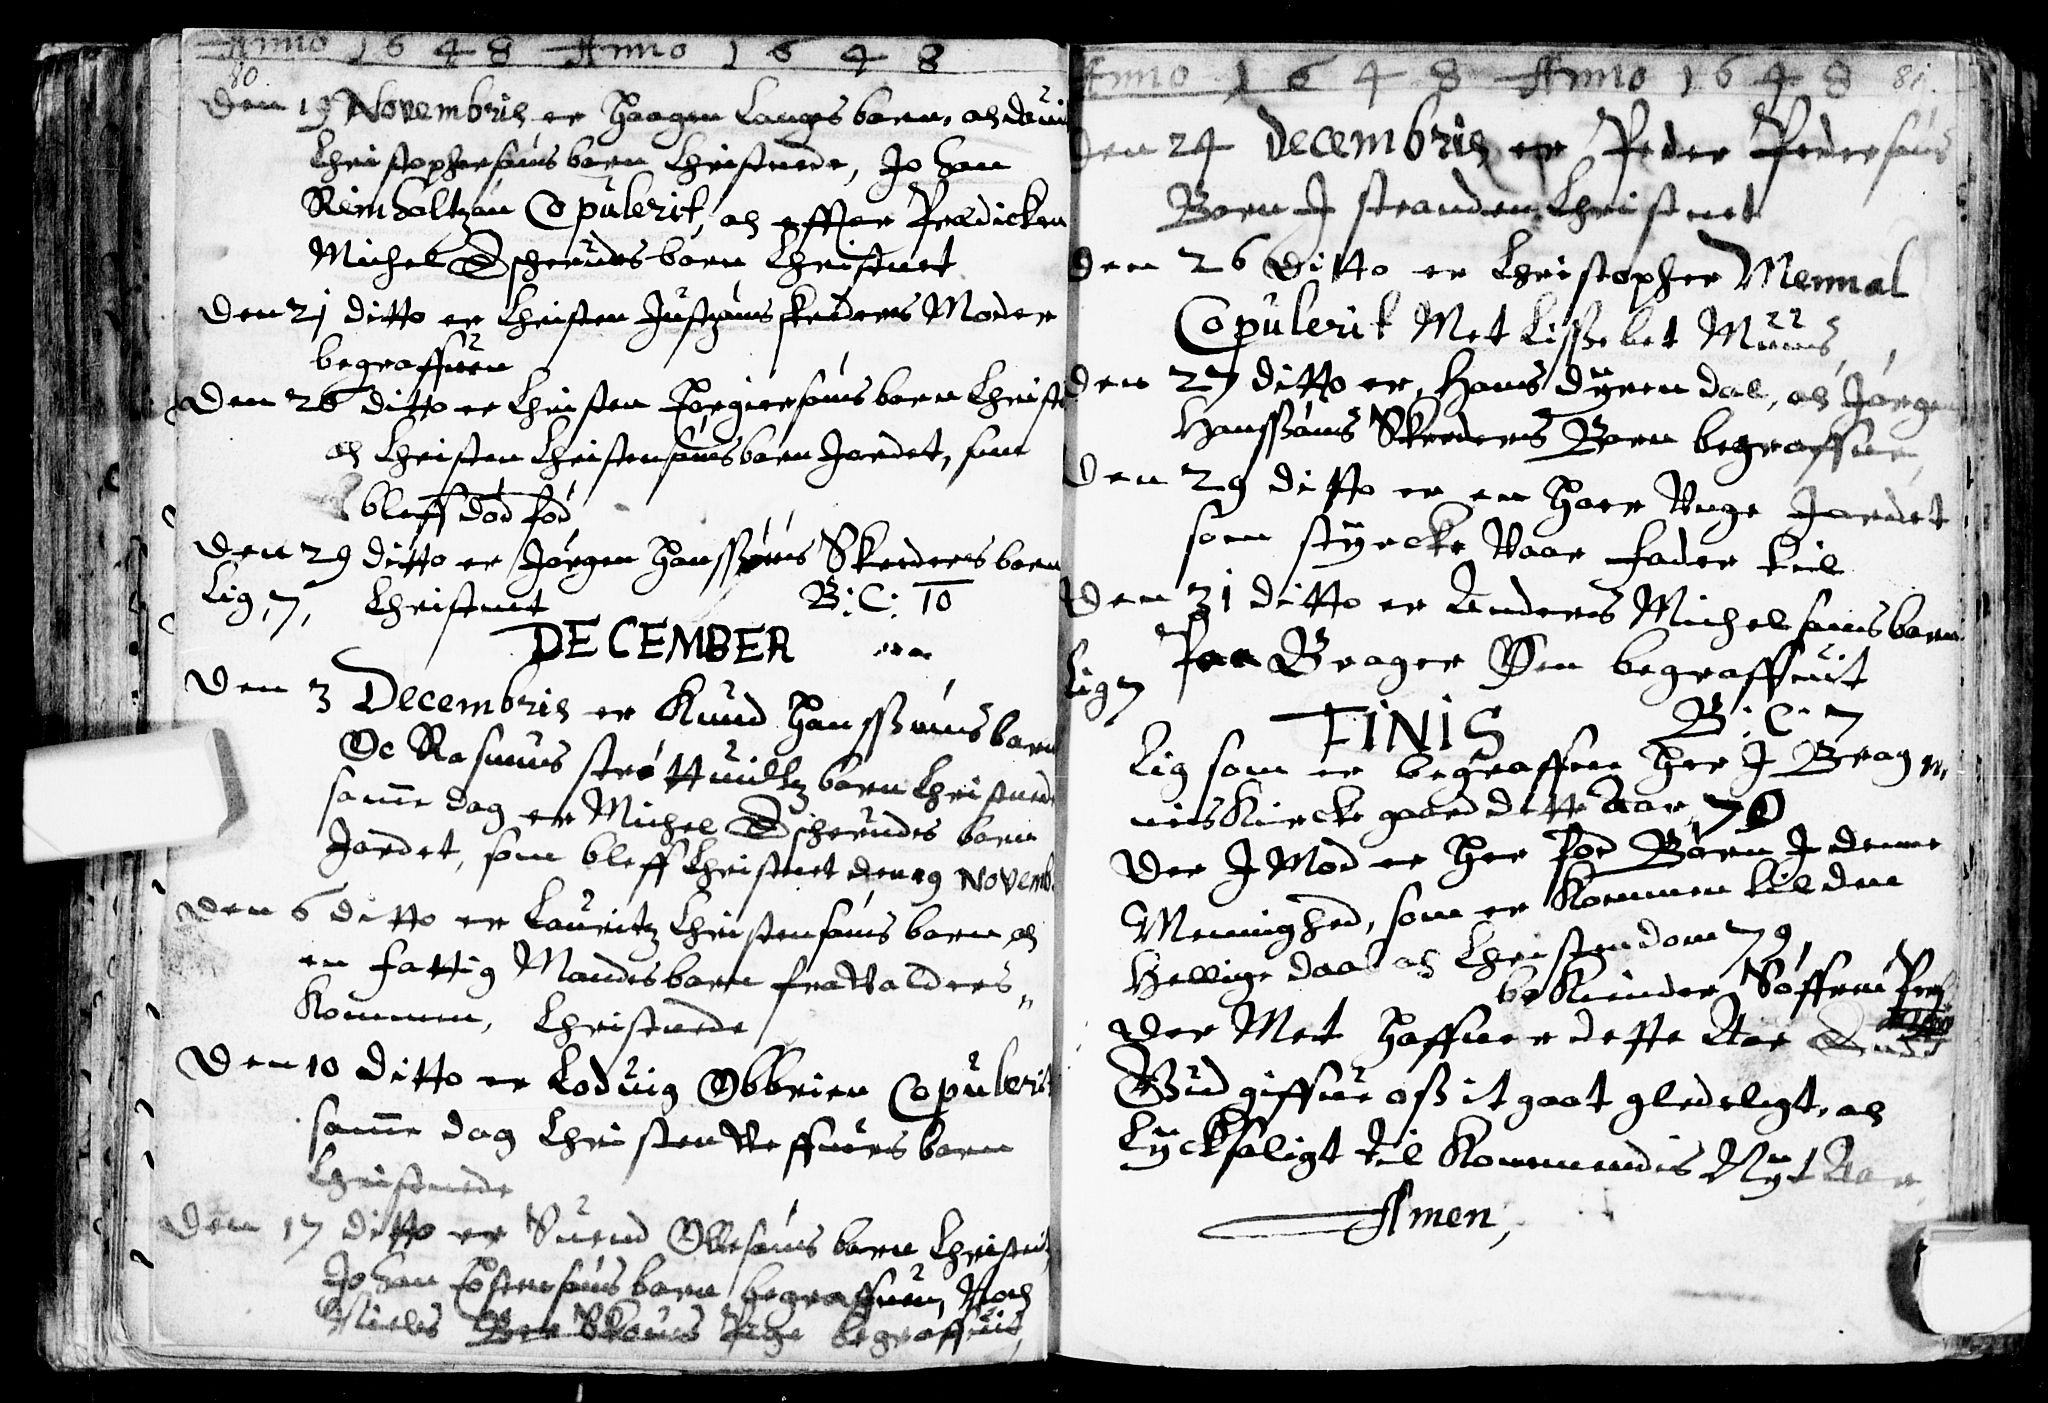 Anno 1648 Anno 1648
80.
Den 19 Novembris er Haagen Langes barn, och Dauid
Christophersøns barn Christnede, Johan
Reinholtzøn Copulerit, och effter Predicken
Michel Tscherndes barn Christnet
Den 21 ditto er Christen Justzøns skreders Moder
begraffuen
Den 26 ditto er Christen Torgiersøns barn Christ
och Christen Christensøns barn Jordet, som
bleff død fød
Den 29 ditto er Jørgen Hanssøns Skreders barn
Lig, 7, Christnet B: C: 10
DECEMBER
Den 3 Decembris er Knud Hanssøns barn
Oc Rasmus barn Christnede
samme dag er Michel Tscherndes barn
Jordet, som bleff Christnet den 19 Novemb.
Den 6 ditto er Lauritz Christensøns barn, och
en fattig Mands barn fra Valders
Kommen, Christnede
Den 10 ditto er Lodvig Obbrien Copulerit
samme dag Christen Reffuers barn
Christnede
Den 17 ditto er Suend Ollesøns barn Christnit,
Johan Tostensøns barn begraffuen, Noch
Niels Skouis Pige begraffuit,
Anno 1648 Anno 1648 81.
Den 24 Decembris er Peder Pedersøns
Barn I stranden Christnet
Den 26 Ditto er Christopher Mennal
Copulerit Met Lissebet Muus,
Den 27 ditto er, Hans Dyrendal, och Jørgen
Hanssøns Skreders Barn begraffuen,
Den 29 ditto er en Hoer Unge Jordet
som styrcke Vaar fader til
Den 31 ditto er Anders Michelsøns barn
Paa Brager Øen begraffuit
Lig 7
FINIS B: C: 7
Lig som er begraffuen her I Brage n,
nis Kircke gaard dette Aar, 70
Der I Mod er her fød Børn I denne
Menninghed, som er Kommen til den
Hellige daab och Christendom 79,
bekiender Søffren Pers:
Der Met haffuer dette Aar Ende
Gud giffue oss it gaat gledeligt, och
Lycksaligt til Kommendis Nyt Aar
Amen,